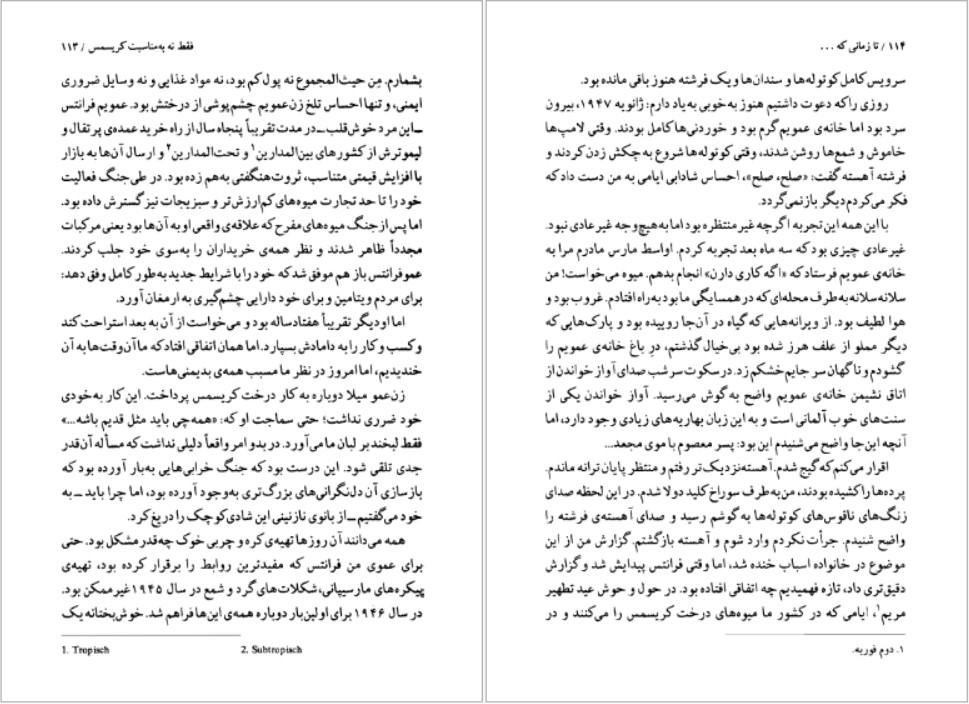 فقط نه به‌مناسبت کریسمس / ۱۱۳
بشمارم. مِن حیث‌المجموع نه پول کم بود، نه مواد غذایی و نه وسایل ضروری
ایمنی، و تنها احساس تلخ زن‌عمویم چشم‌پوشی از درختش بود. عمویم فرانتس
ـ این مرد خوش‌قلب ـ در مدت تقریباً پنجاه سال از راه خرید عمده‌ی پرتقال و
لیموترش از کشورهای بین‌المدارین۱ و تحت‌المدارین۲ و ارسال آن‌ها به بازار
با افزایش قیمتی متناسب، ثروت هنگفتی به‌هم زده بود. در طی جنگ فعالیت
خود را تا حد تجارت میوه‌های کم‌ارزش‌تر و سبزیجات نیز گسترش داده بود.
اما پس از جنگ میوه‌های مفرح که علاقه‌ی واقعی او به آن‌ها بود یعنی مرکبات
مجدداً ظاهر شدند و نظر همه‌ی خریداران را به‌سوی خود جلب کردند.
عموفرانتس باز هم موفق شد که خود را با شرایط جدید به‌طور کامل وفق دهد:
برای مردم ویتامین و برای خود دارایی چشم‌گیری به ارمغان آورد.
اما او دیگر تقریباً هفتادساله بود و می‌خواست از آن به بعد استراحت کند
و کسب و کار را به دامادش بسپارد. اما همان اتفاقی افتاد که ما آن‌وقت‌ها به آن
خندیدیم، اما امروز در نظر ما مسبب همه‌ی بدیمنی‌هاست.
زن‌عمو میلا دوباره به کار درخت کریسمس پرداخت. این کار به‌خودی
خود ضرری نداشت؛ حتی سماجت او که: «همه‌چی باید مثل قدیم باشه...»
فقط لبخند بر لبان ما می‌آورد. در بدو امر واقعاً دلیلی نداشت که مسأله آن‌قدر
جدی تلقی شود. این درست بود که جنگ خرابی‌هایی به‌بار آورده بود که
بازسازی آن دل‌نگرانی‌های بزرگ‌تری به‌وجود آورده بود، اما چرا باید ـ به
خود می‌گفتیم ـ از بانوی نازنینی این شادی کوچک را دریغ کرد.
همه می‌دانند آن روزها تهیه‌ی کره و چربی خوک چه‌قدر مشکل بود. حتی
برای عموی من فرانتس که مفیدترین روابط را برقرار کرده بود، تهیه‌ی
پیکره‌های مارسیپانی، شکلات‌های گرد و شمع در سال ۱۹۴۵ غیرممکن بود.
در سال ۱۹۴۶ برای اولین‌بار دوباره همه‌ی این‌ها فراهم شد. خوش‌بختانه یک
1. Tropisch 2. Subtropisch
۱۱۴ / تا زمانی که ...
سرویس کامل کوتوله‌ها و سندان‌ها و یک فرشته هنوز باقی مانده بود.
روزی را که دعوت داشتیم هنوز به‌خوبی به‌یاد دارم: ژانویه ۱۹۴۷، بیرون
سرد بود اما خانه‌ی عمویم گرم بود و خوردنی‌ها کامل بودند. وقتی لامپ‌ها
خاموش و شمع‌ها روشن شدند، وقتی کوتوله‌ها شروع به چکش زدن کردند و
فرشته آهسته گفت: «صلح، صلح»، احساس شادابی ایامی به من دست داد که
فکر می‌کردم دیگر بازنمی‌گردد.
با این همه این تجربه اگرچه غیرمنتظره بود اما به‌هیچ‌وجه غیرعادی نبود.
غیرعادی چیزی بود که سه ماه بعد تجربه کردم. اواسط مارس مادرم مرا به
خانه‌ی عمویم فرستاد که «اگه کاری دارن» انجام بدهم. میوه می‌خواست! من
سلانه‌سلانه به‌طرف محله‌ای که در همسایگی ما بود به‌راه افتادم. غروب بود و
هوا لطیف بود. از ویرانه‌هایی که گیاه در آن‌جا روییده بود و پارک‌هایی که
دیگر مملو از علف هرز شده بود بی‌خیال گذشتم، درِ باغ خانه‌ی عمویم را
گشودم و ناگهان سر جایم خشکم زد. در سکوت سر شب صدای آواز خواندن از
اتاق نشیمن خانه‌ی عمویم واضح به‌گوش می‌رسید. آواز خواندن یکی از
سنت‌های خوب آلمانی است و به این زبان بهاریه‌های زیادی وجود دارد، اما
آنچه این‌جا واضح می‌شنیدم این بود: پسر معصوم با موی مجعد...
اقرار می‌کنم که گیج شدم. آهسته نزدیک‌تر رفتم و منتظر پایان ترانه ماندم.
پرده‌ها را کشیده بودند، من به‌طرف سوراخ کلید دولا شدم. در این لحظه صدای
زنگ‌های ناقوس‌های کوتوله‌ها به‌گوشم رسید و صدای آهسته‌ی فرشته را
واضح شنیدم. جرأت نکردم وارد شوم و آهسته بازگشتم. گزارش من از این
موضوع در خانواده اسباب خنده شد، اما وقتی فرانتس پیدایش شد و گزارش
دقیق‌تری داد، تازه فهمیدیم چه اتفاقی افتاده بود. در حول و حوش عید تطهیر
مریم۱، ایامی که در کشور ما میوه‌های درخت کریسمس را می‌کنند و در
۱. دوم فوریه.